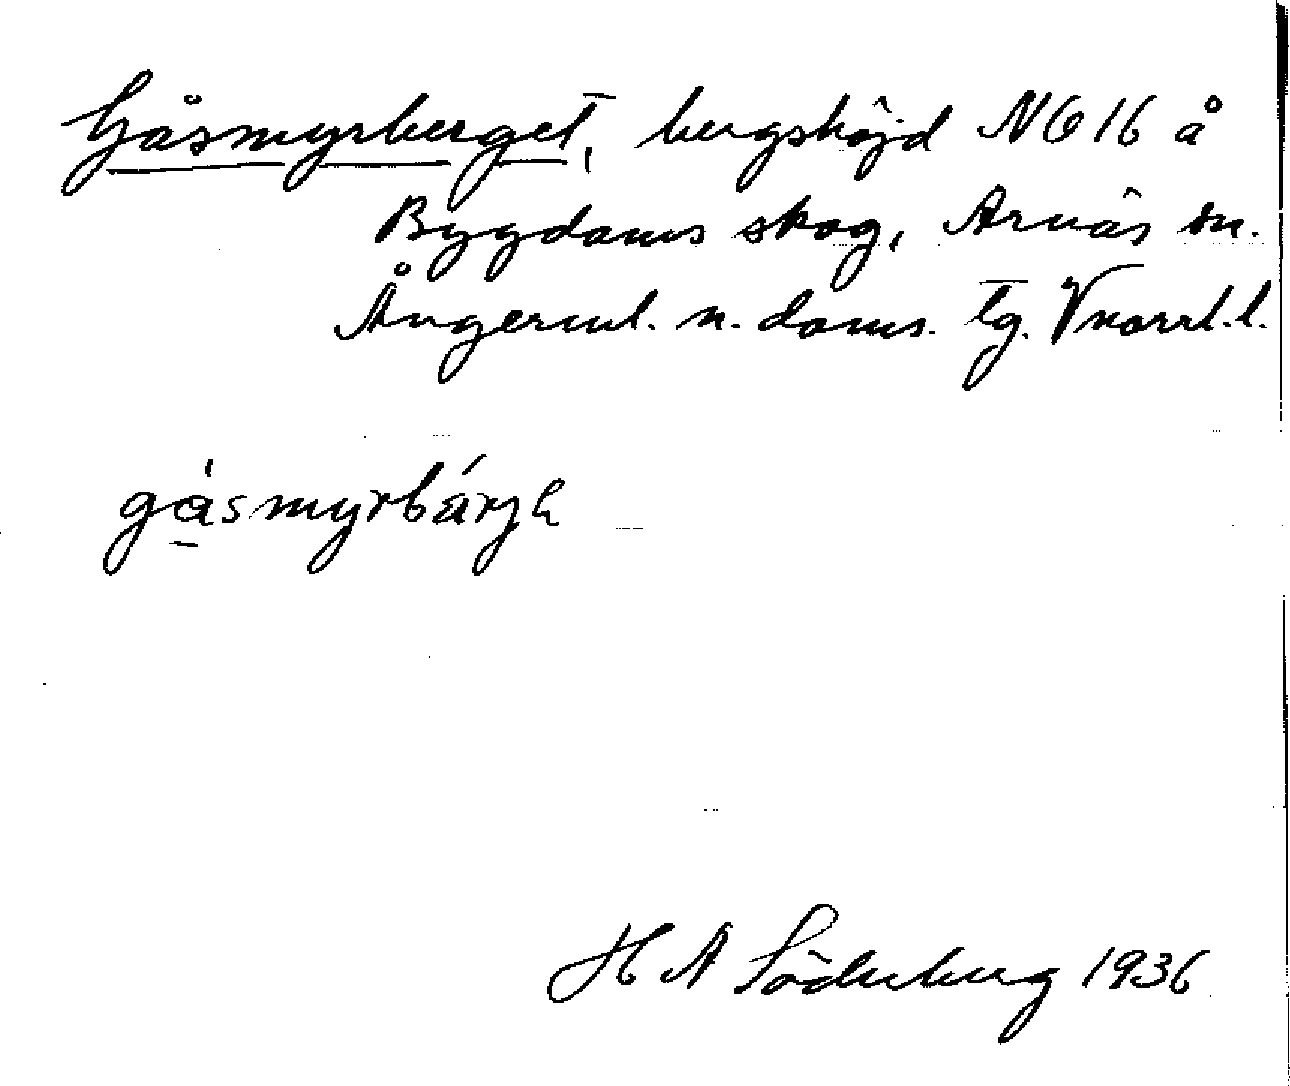 Gåsmyrberget, bergshöjd NO 16 å
Bygdoms skog, Arnäs sn.
Ångerml. n. doms. tg. Vnorrl. l.
gásmyrbárjh
H A Söderberg 1936